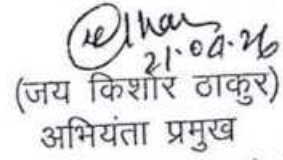 21.04.26
(जय किशोर ठाकुर)
अभियंता प्रमुख